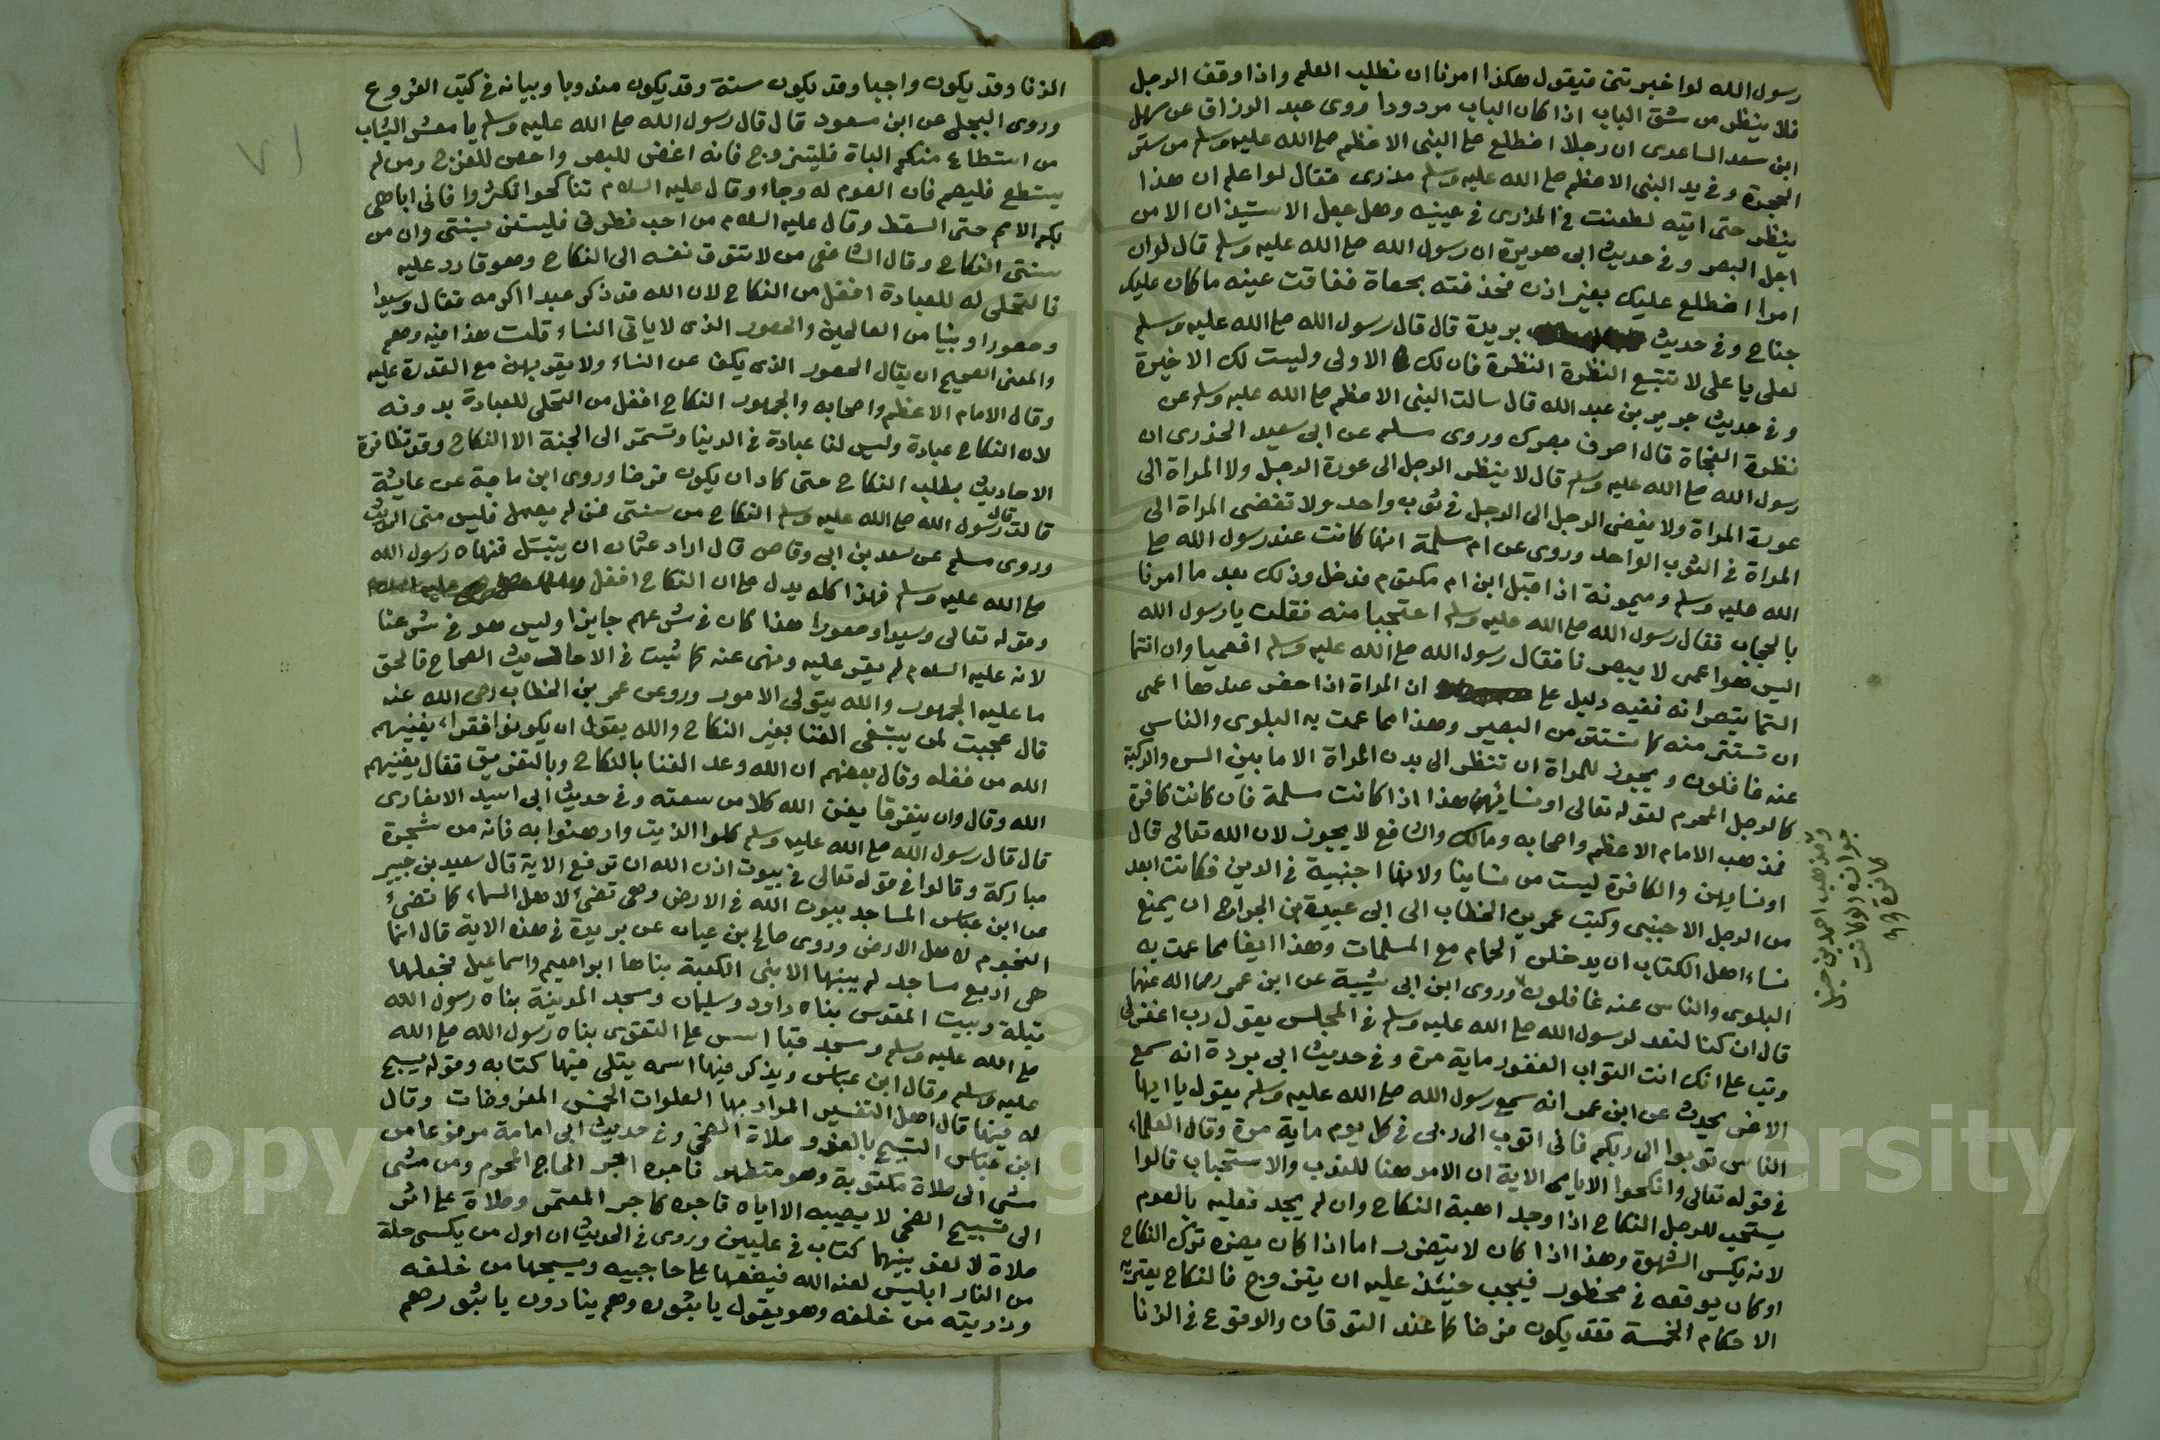 رسول الله لو اخبرتني فيقول هكذا امرنا ان نطلب العلم واذا وقف الرجل
فلا ينظر من شق الباب اذا كان الباب مردودا روى عبد الرزاق عن سهل
ابن سعد الساعدى ان رجلا اضطلع ع النبى الاعظم صلى الله عليه وسلم من ستر
الحجرة وفي يد النبى الاعظم صلى الله عليه وسلم مذرى فقال لو اعلم ان هذا
ينظر حتى اتيه لطعنت في المذرى في عينيه وهل جعل الاستيذان الا من
اجل البصر وفي حديث ابى هريرة ان رسول الله صلى الله عليه وسلم قال لو ان
امرا اضطلع عليك بغير اذن فخذفته بحصاة ففاقت عينه ما كان عليك
جناح وفي حديث بريدة قال قال رسول الله صلى الله عليه وسلم
لعلى يا على لا تتبع النظرة النظرة فان لك الاولى وليست لك الاخيرة
وفي حديث جرير بن عبد الله قال سالت النبى الاعظم صلى الله عليه وسلم عن
نظرة الفجاة قال اصرف بصرك وروى مسلم عن ابى سعيد الخذرى ان
رسول الله صلى الله عليه وسلم قال لا ينظر الرجل الى عورة الرجل ولا المراة الى
عورة المراة ولا يفضى الرجل الى الرجل في ثوب واحد ولا تفضى المراة الى
المراة في الثوب الواحد وروى عن ام سلمة انها كانت عند رسول الله صلى
الله عليه وسلم وميمونة اذ اقبل ابن ام مكتوم فدخل وذلك بعد ما امرنا
بالحجاب فقال رسول الله صلى الله عليه وسلم احتجبا منه فقلت يا رسول الله
اليس هو اعمى لا يبصرنا فقال رسول الله صلى الله عليه وسلم افعميا وان انتما
التما تبصرانه ففيه دليل ع ان المراة اذا حضر عندها اعمى
ان تستتر منه كما تستتر من البصير وهذا مما عمت به البلوى والناس
عنه غافلون ويجوز للمراة ان تنظر الى بدن المراة الا ما بين السره والركبة
كالرجل المحرم لقوله تعالى او نسائهن هذا اذا كانت مسلمة فان كانت كافرة
فمذهب الامام الاعظم واصحابه ومالك والشافع لا يجوز لان الله تعالى قال
او نسايهن والكافرة ليست من نساينا ولانها اجنبية في الدين فكانت ابعد
من الرجل الاجنبى وكتب عمر بن الخطاب الى ابى عبيدة بن الجراح ان يمنع
نساء اهل الكتاب ان يدخلن الحمام مع المسلمات وهذا ايضا مما عمت به
البلوى والناس عنه غافلون وروى ابن ابى شيبة عن ابن عمر رصى الله عنهما
قال ان كنا لنعد لرسول الله صلى الله عليه وسلم في المجلس يقول رب اغفر لى
وتب على انك انت التواب الغفور ماية مرة وفي حديث ابى بردة انه سمع
الاغر يحدث عن ابن عمر انه سمع رسول الله صلى الله عليه وسلم يقول يا ايها
الناس توبوا الى ربكم فانى اتوب الى ربى في كل يوم ماية مرة وقال العلماء
في قوله تعالى وانكحوا الايامى الاية ان الامر هنا للندب والاستحباب قالوا
يستحب للرجل النكاح اذا وجد اهبة النكاح وان لم يجد فعليه بالصوم
لانه يكسر الشهوة وهذا اذا كان لا يتضرر اما اذا كان يضره ترك النكاح
او كان يوقعه في محظور فيجب حينئذ عليه ان يتزوج فالنكاح يعتريه
الاحكام الخمسة فقد يكون فرضا كما عند التوقان والوقوع في الزنا
ومذهب احمد بن حنبل
جوازه ولو كانت
كافرة
الزنا وقد يكون واجبا وقد يكون سنة وقد يكون مندوبا وبيانه في كتب الفروع
وروى البجلى عن ابن مسعود قال قال رسول الله صلى الله عليه وسلم يا معشر الشباب
من استطاع منكم الباة فليتزوج فانه اغض للبصر واحصن للفرج ومن لم
يستطع فليصم فان الصوم له وجاء وقال عليه السلام تناكحوا تكثروا فانى اباهى
بكم الامم حتى السقط وقال عليه السلام من احب فطرتى فليستن بسنتى وان من
سنتى النكاح وقال الشافعى من لا تتوق نفسه الى النكاح وهو قادر عليه
فالتخلى له للعبادة افضل من النكاح لان الله قد ذكر عبدا اكرمه فقال وسيدا
وحصورا ونبيا من الصالحين والحصور الذى لا ياتى النساء قلت هذا فيه وهم
والمعنى الصحيح ان يقال الحصور الذى يكف عن النساء ولا يقربهن مع القدرة عليه
وقال الامام الاعظم واصحابه والجمهور النكاح افضل من التخلى للعبادة بدونه
لان النكاح عبادة وليس لنا عبادة في الدنيا وتستمر الى الجنة الا النكاح وقد تظافرة
الاحاديث بطلب النكاح حتى كاد ان يكون فرضا وروى ابن ماجة عن عايشة
قالت قال رسول الله صلى الله عليه وسلم النكاح من سنتى فمن لم يعمل فليس منى الحديث
وروى مسلم عن سعد بن ابى وقاص قال اراد عثمان ان يتبتل فنهاه رسول الله
صلى الله عليه وسلم فهذا كله يدل ع ان النكاح افضل
وقوله تعالى وسيدا وحصورا هذا كان في شرعهم جايزا وليس هو في شرعنا
لانه عليه السلام لم يقر عليه ونهى عنه كما ثبت في الاحاديث الصحاح فالحق
ما عليه الجمهور والله يتولى الامور وروى عن عمر بن الخطاب رصى الله عنه
قال عجبت لمن يبتغى الغنا بغير النكاح والله يقول ان يكونوا فقراء يغنيهم
الله من فضله وقال بعضهم ان الله وعد الغنا بالنكاح وبالتفريق فقال يغنيهم
الله وقال وان يتفرقا يغن الله كلا من سعته وفي حديث ابى اسيد الانصارى
قال قال رسول الله صلى الله عليه وسلم كلوا الزيت وادهنوا به فانه من شجرة
مباركة وقالوا في قوله تعالى في بيوت اذن الله ان ترفع الاية قال سعيد بن جبير
عن ابن عباس المساجد بيوت الله في الارض وهى تضئ لاهل السماء كما تضئ
النجوم لاهل الارض وروى صالح بن عيان عن بريدة في هذه الاية قال انما
هى اربع مساجد لم يبنها الا نبى الكعبة بناها ابراهيم واسماعيل فجعلها
قبلة وبيت المقدس بناه داود وسليمان ومسجد المدينة بناه رسول الله
صلى الله عليه وسلم ومسجد قبا اسس على التقوى بناه رسول الله صلى الله
عليه وسلم وقال ابن عباس ويذكر فيها اسمه يتلى فيها كتابه وقوله يسبح
له فيها قال اهل التفسير المراد بها الصلوات الخمس المفروضات وقال
ابن عباس التسبيح بالغدو صلاة الضحى وفي حديث ابى امامة مرفوعا من
مشى الى صلاة مكتوبة وهو متطهر فاجره اجر الحاج المحرم ومن مشى
الى تسبيح الضحى لا يصيبه الا اياه فاجره كاجر المعتمر وصلاة على اثر
صلاة لا لغو بينهما كتاب في عليين وروى في الحديث ان اول من يكسى حلة
من النار ابليس لعنه الله فيضعها على حاجبيه ويسحبها من خلفه
وذريته من خلفه وهو يقول يا ثبوره وهم ينادون يا ثبورهم
٧١
Copyright © King Saud University